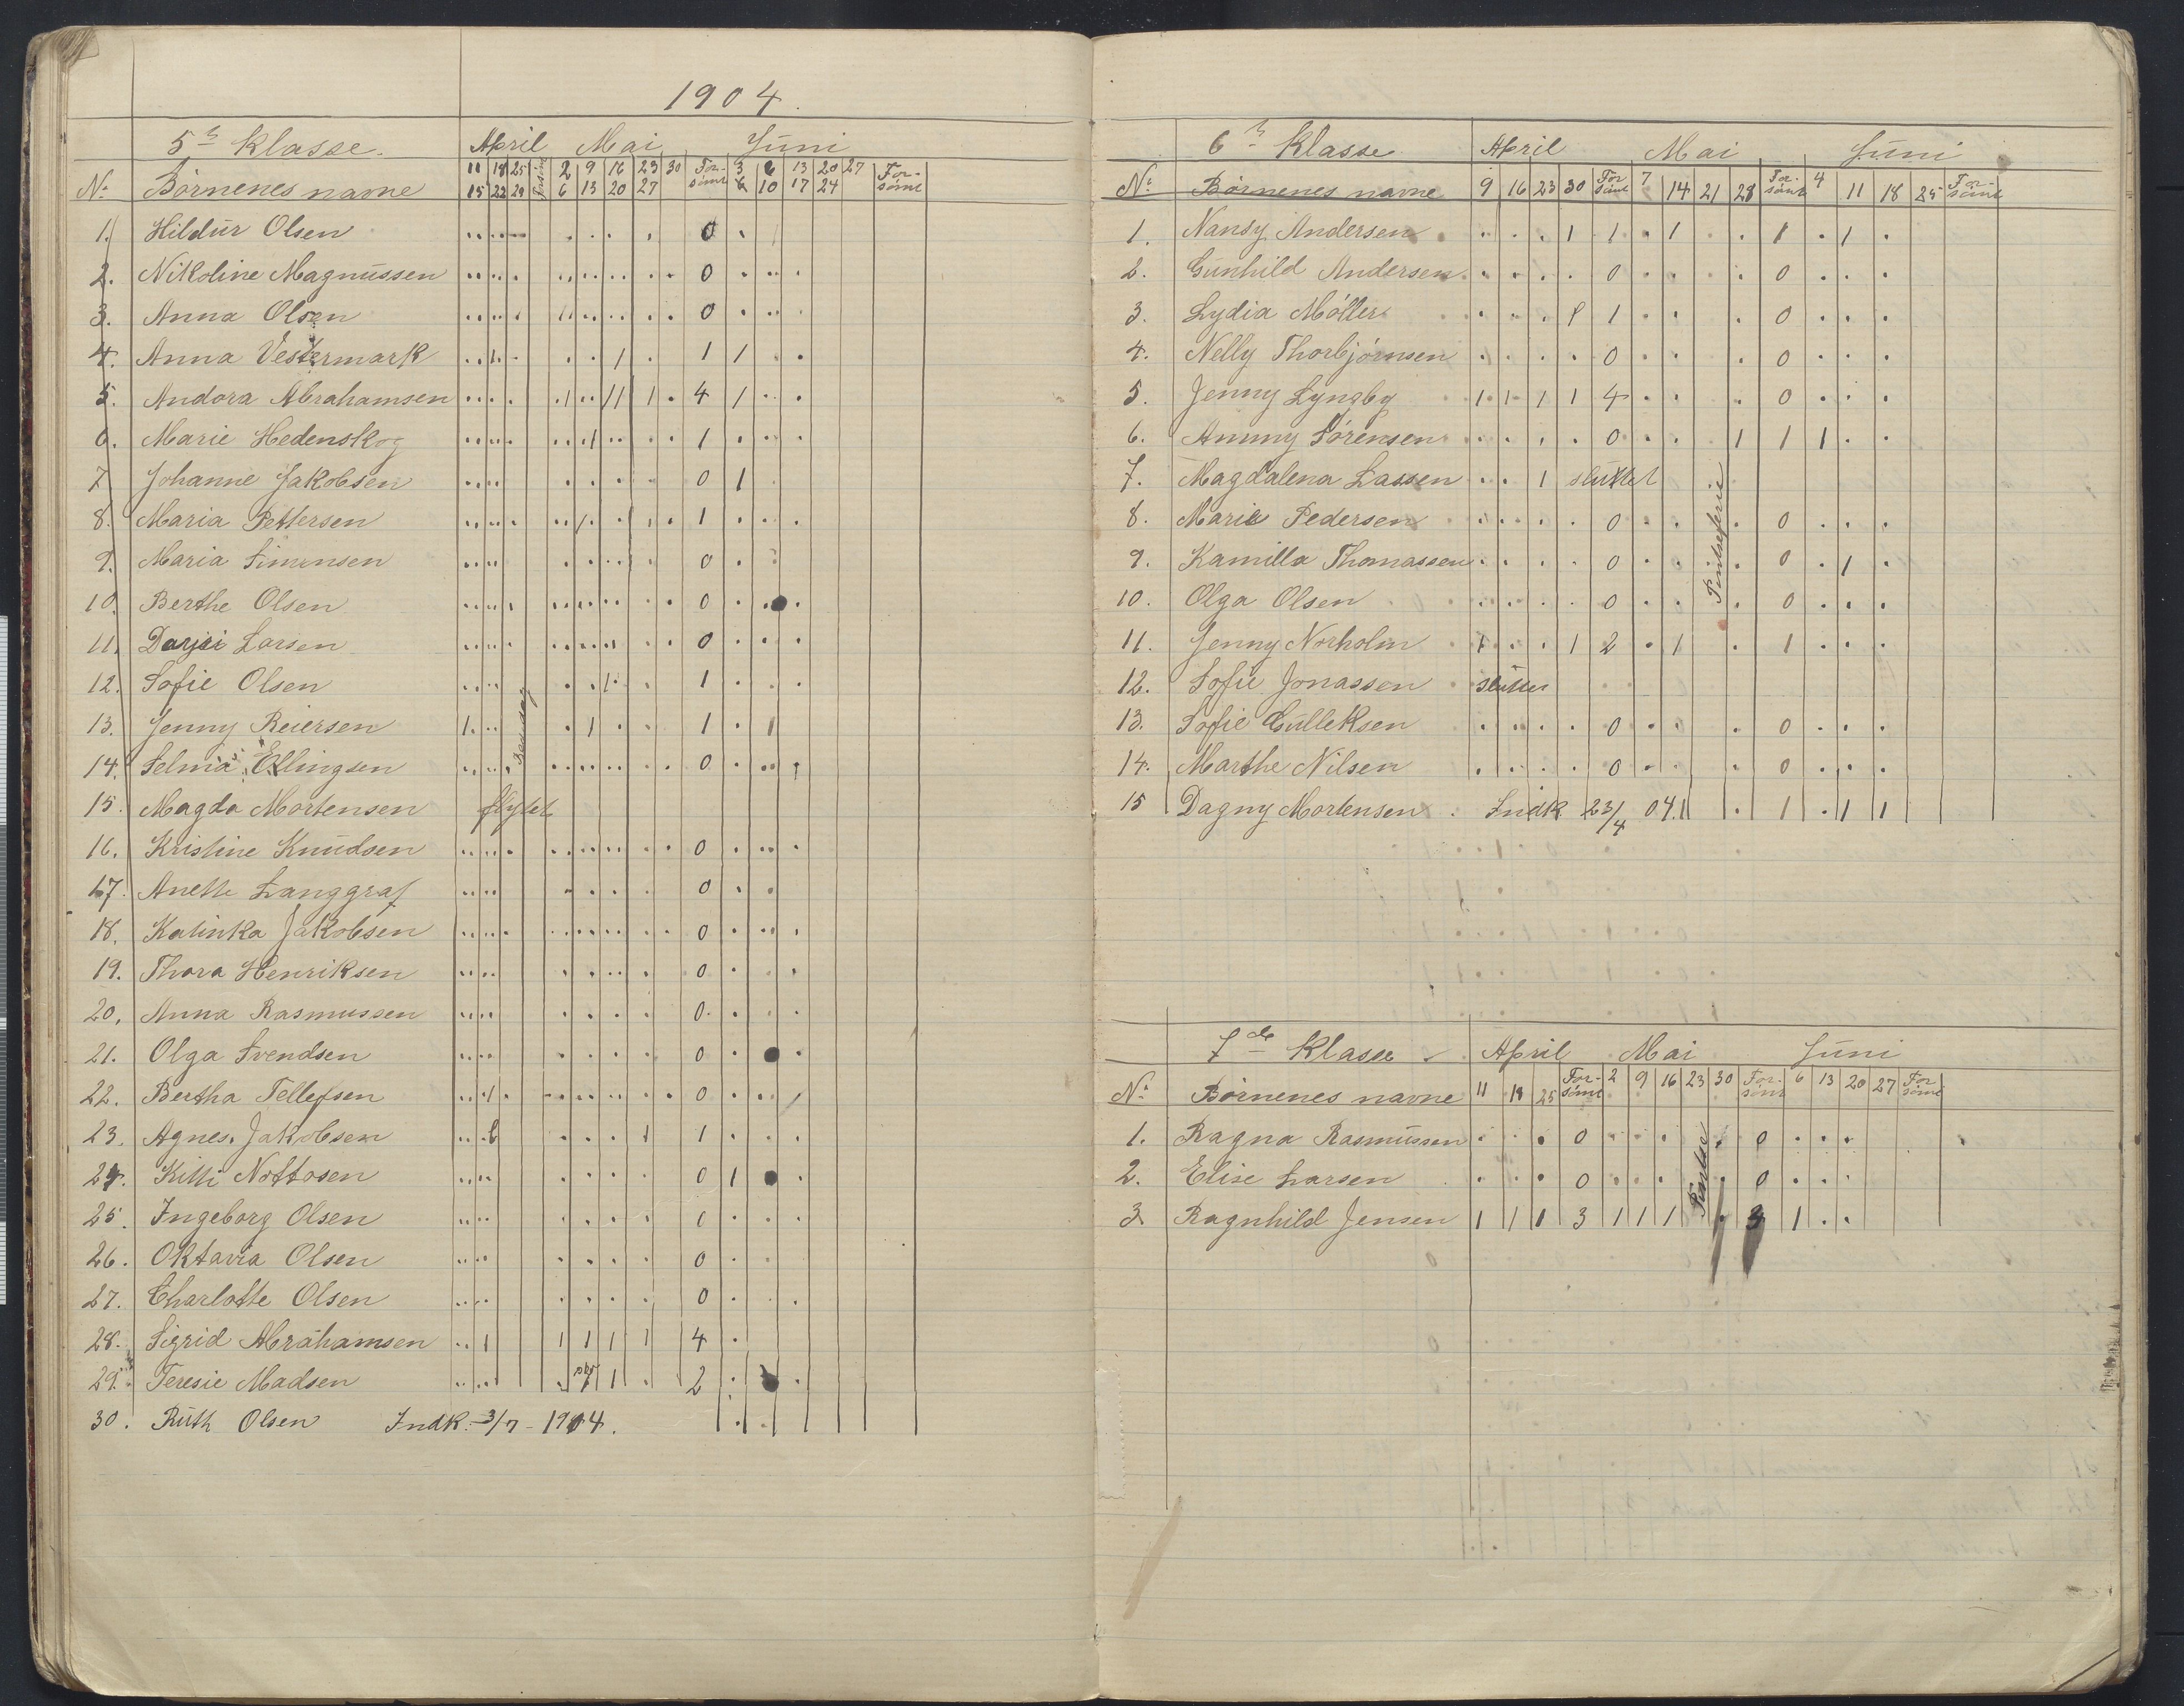 1904.
5te Klasse. April Mai Juni
11 18 25 2 9 16 23 30 For- 3 6 13 20 27 For-
No Børnenes navne 15 22 29 6 13 20 27 sømt 6 10 17 24 sømt
1. Hildur Olsen 0
2. Nikoline Magnussen 0
3. Anna Olsen 0
4. Anna Vestermark 1 1 1 1
5. Andora Abrahamsen 1 11 1 4 1
6. Marie Hedenskog 1 1
7 Johanne Jakobsen 0 1
8. Maria Pettersen 1 1
9. Maria Simensen 0
10. Berthe Olsen 0
11. Larsen 0
12. Sofie Olsen 1 1
13. Jenny Reiersen 1 1 1 1
14. Selma Ellingsen 0
15. Magda Mortensen flyttet
16. Kristine Knudsen 0
17. Anette Langgraf 0
18. Katinka Jakobsen 0
19. Thora Henriksen 0
20. Anna Rasmussen 0
21. Olga Svendsen 0
22. Bertha Tellefsen 0
23. Agnes Jakobsen 1 1
24. Kitti Nottosen 0 1
25. Ingeborg Olsen
26. Oktavia Olsen 0
27. Charlotte Olsen 0
28. Sigrid Abrahamsen 1 1 1 1 1 4
29. Teresie Madsen 1 2
30. Ruth Olsen Indk. 3/7 - 1904.
6te Klasse April Mai Juni
No Børnenes navne 9 16 23 30 For sømt 7 14 21 28 For- sømt 4 11 18 25 For- sømt
1. Nansy Andersen 1 1 1 1 1
2. Gunhild Andersen 0 0
3. Lydia Møller 1 0
4. Nelly Thorbjørnsen 0 0
5. Jenny Lyngby 1 1 1 1 4 0
6. Ammy Sørensen 0 1 1 1
7. Magdalena Lassen 1 sluttet
8. Marie Pedersen 0 0
9. Kamilla Thomassen 0 0 1
10. Olga Olsen 0 0
11. Jenny Norholm 1 1 2 1 1
12. Sofie Jonassen sluttet
13. Sofie Gulleksen 0 0
14. Marthe Nilsen 0 0
15 Dagny Mortensen. Indk 23/4 04. 1 1 1
Pintseferie
7de Klasse April Mai Juni
No Børnenes navne 11 18 25 For- sømt 2 9 16 23 30 For- sømt 6 13 20 27 For sømt
1. Ragna Rasmussen 0 0
2. Elise Larsen 0 0
3. Ragnhild Jensen 1 1 1 3 1 1 1 3 1
Pintse